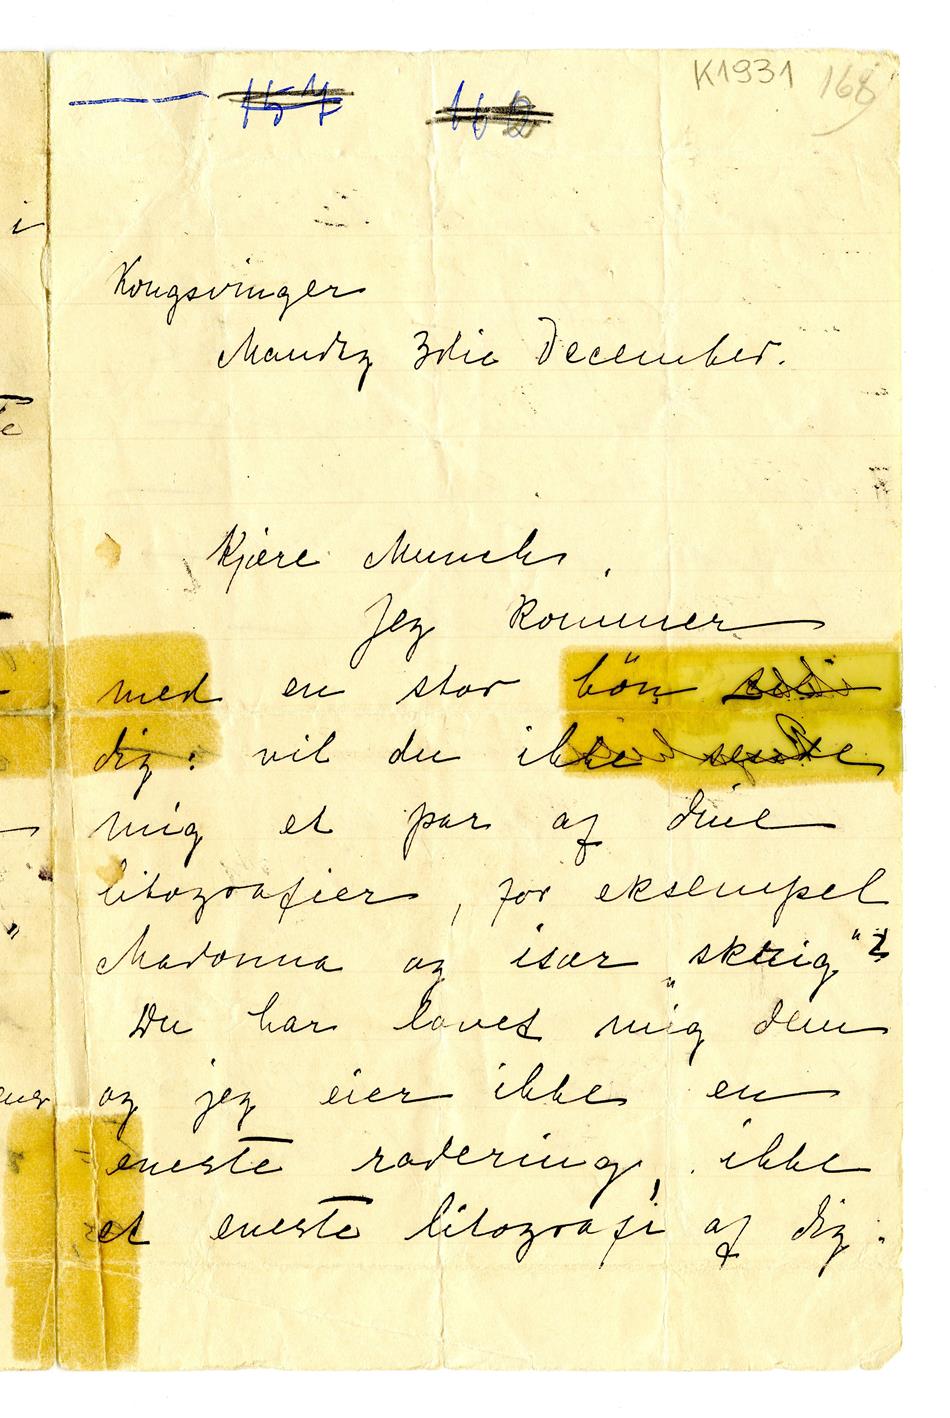 K1931 168
157 162
Kongsvinger
Mandag 3die December.
Kjære Munch,
Jeg kommer
med en stor bön
dig: vil du ikke sende
mig et par af dine
litografier, for eksempel
Madonna og især „skrig"?
Du har lovet mig dem
og jeg eier ikke en
eneste radering, ikke
et eneste litografi af dig.